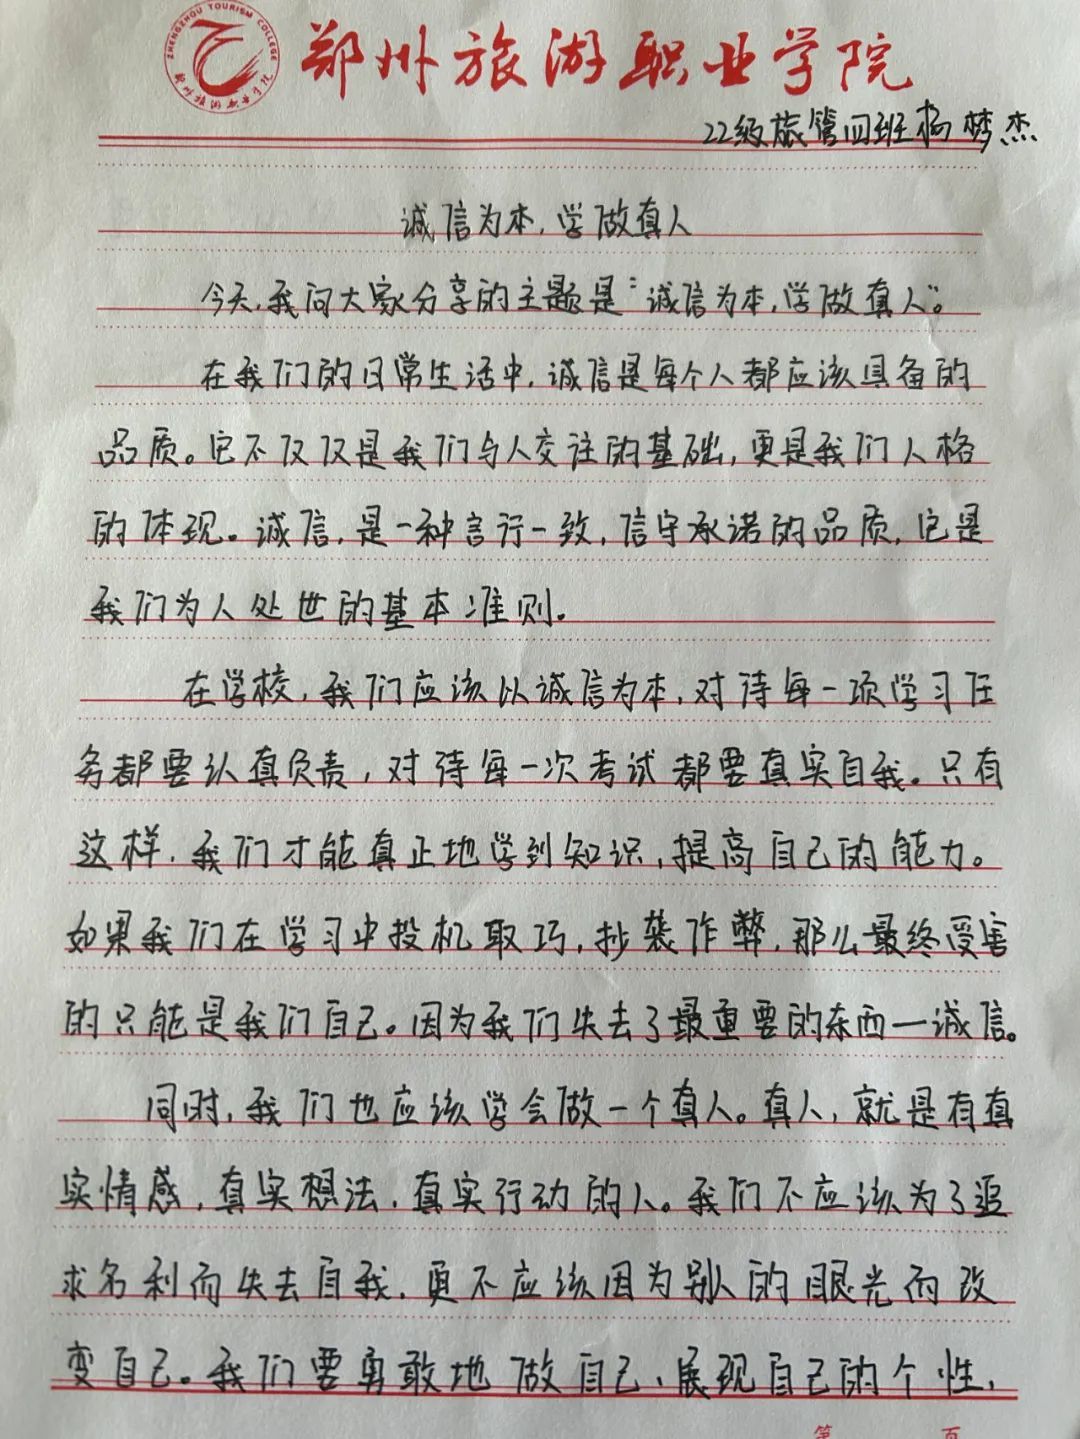 ZHENGZHOU TOURISM COLLEGE
郑州旅游职业学院
郑州旅游职业学院
22级旅管四班杨梦杰
诚信为本,学做真人
今天,我向大家分享的主题是“诚信为本,学做真人”。
在我们的日常生活中,诚信是每个人都应该具备的
品质。它不仅仅是我们与人交往的基础,更是我们人格
的体现。诚信,是一种言行一致,信守承诺的品质,它是
我们为人处世的基本准则。
在学校,我们应该以诚信为本,对待每一项学习任
务都要认真负责,对待每一次考试都要真实自我。只有
这样,我们才能真正地学到知识,提高自己的能力。
如果我们在学习中投机取巧,抄袭作弊,那么最终受害
的只能是我们自己。因为我们失去了最重要的东西—诚信。
同时,我们也应该学会做一个真人。真人,就是有真
实情感,真实想法,真实行动的人。我们不应该为了追
求名利而失去自我,更不应该因为别人的眼光而改
变自己。我们要勇敢地做自己、展现自己的个性,
第 页